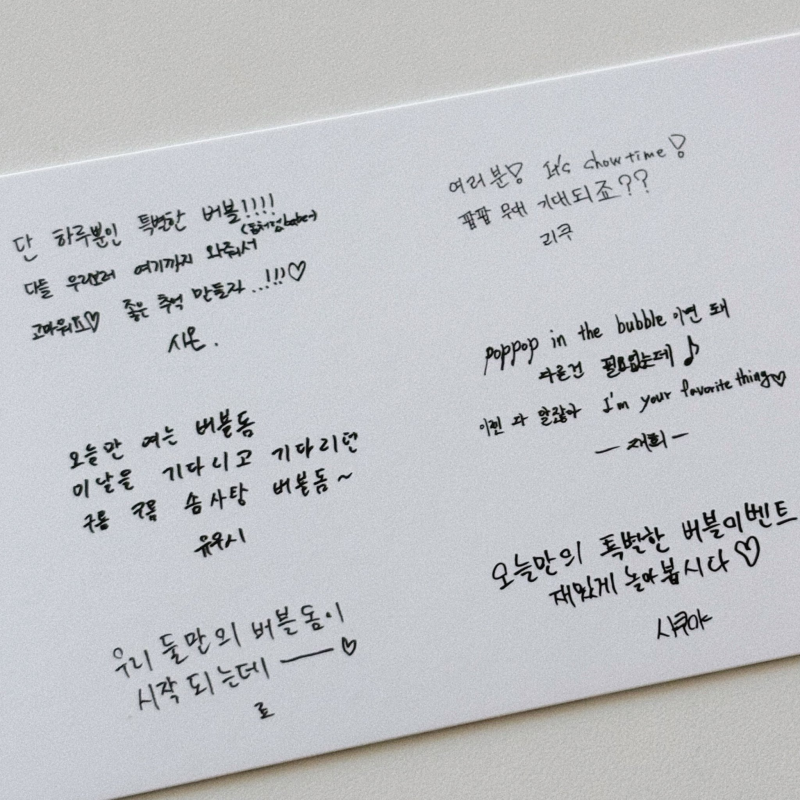 단 하루뿐인 특별한 버블!!!!
다들 우리보러 여기까지 와줘서
고마워요♡ 좋은 추억 만들자..!!!♡
시온.
여러분! It's showtime!
팝팝 무대 기대되죠??
리쿠
오늘만 여는 버블돔
이날을 기다리고 기다리던
구름 구름 솜사탕 버블돔~
유우시
poppop in the bubble 이면 돼
다른건 필요없는데♪
이런 나 알잖아 I'm your favorite thing♡
— 재희 —
우리 둘만의 버블돔이
시작되는데 —♡
료
오늘만의 특별한 버블이벤트
재밌게 놀아봅시다♡
사쿠야